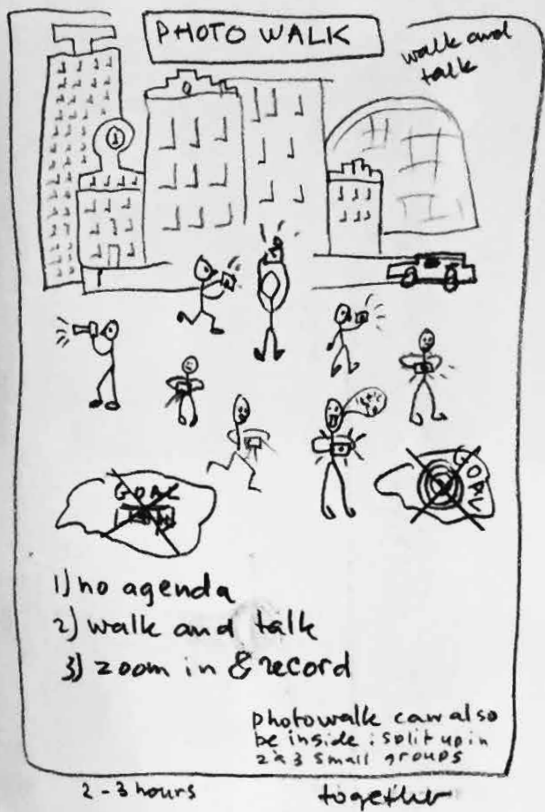 PHOTO WALK
walk and
talk
GOAL
GOAL
1) no agenda
2) walk and talk
3) zoom in & record
photowalk can also
be inside : split up in
2 à 3 small groups
2-3 hours
together